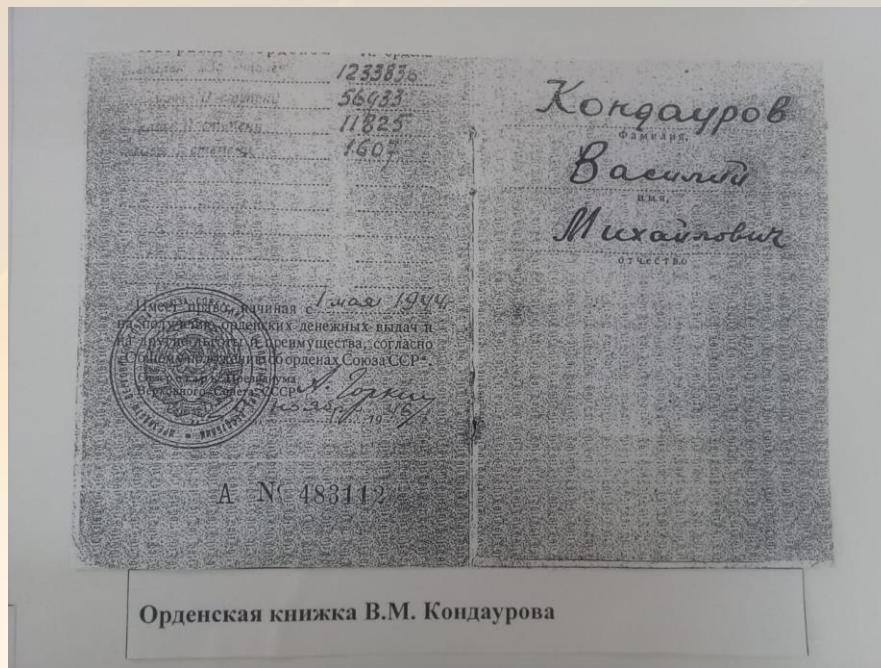 1233836
56933
11825
степени 1607
Имеет право, начиная с 1 мая 1944
на получение орденских денежных выдач и
на другие льготы и преимущества, согласно
„Общему положению об орденах Союза ССР“.
Секретарь Президиума
Верховного Совета СССР А. Горкин
ноября 1946 г.
А № 483112
Кондауров
Фамилия,
Василий
имя,
Михайлович
отчество
Орденская книжка В.М. Кондаурова